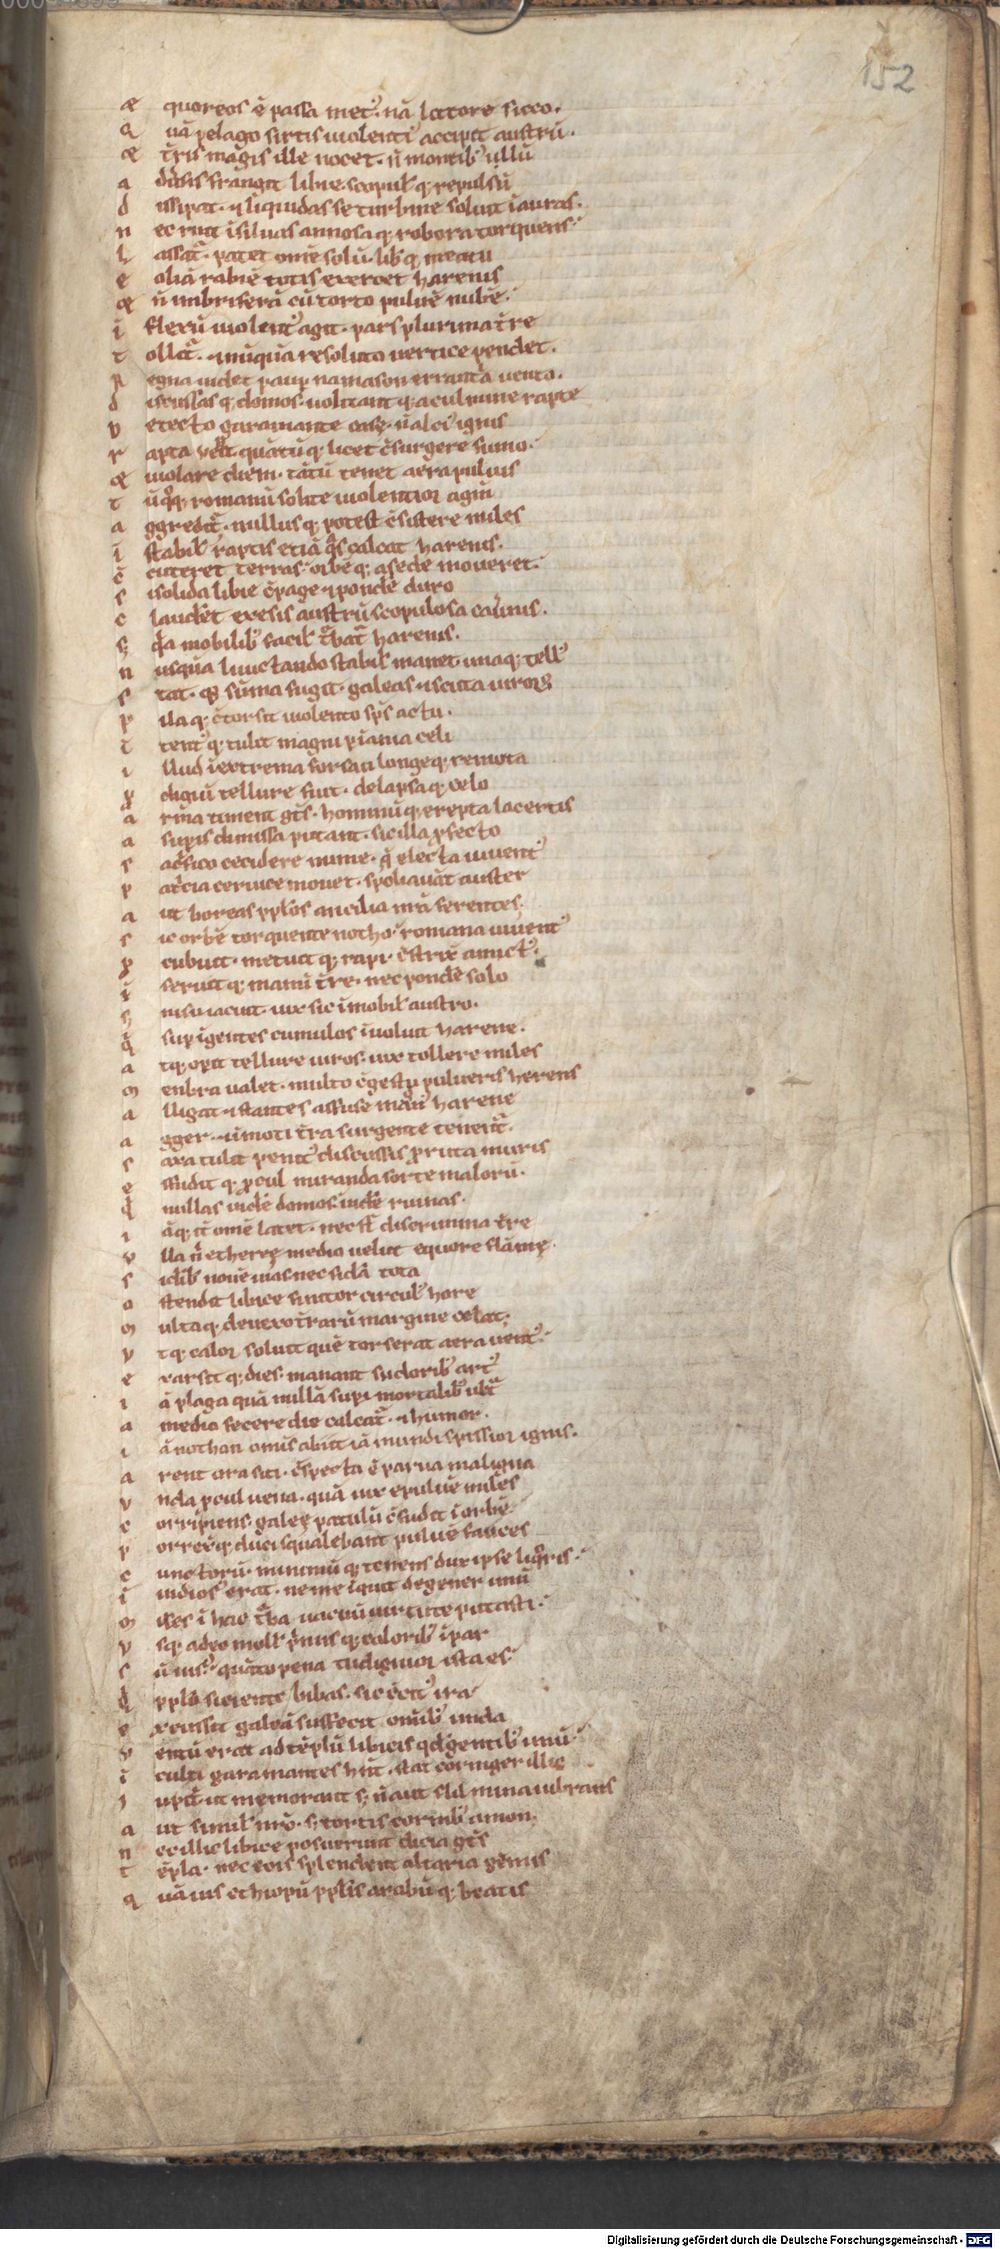 152
æ quoreos ē passa met᷒. nā littore sicco.
Q uā pelago sirtis uiolenti᷒ accipit austrū.
Æ t̄ris magis ille nocet. n̄ montib᷒ ullū
a duersis frangit libie scopul᷒ q; repulsū
d issipat. ⁊ liquidas se turbine soluit ī auras.
n ec ruit ī siluas annosa q; robora torquens
l assat᷑. patet om̄e solū. lib᷒ q; meatu
e oliā rabiē totis exercet harenis
æ n̄ imbriferā cū torto puluē nubē.
ī flexū uiolent᷒ agit. pars plurima t̄re
t ollit᷑. ⁊ nūquā resoluto uertice pendet.
R egna uidet paup̄ namason errantā uento.
d iscussas q; domos. uolitant q; a culmine rapte
D etecto garamante case. n̄ alci᷒ ignis
r apta uehit quātū q; licet c̄surgere fumo.
æ uiolare diem. tātū tenet aera puluis
t ū qq; romanū solito uiolentior agm̄
a ggredit᷑. nullus q; potest c̄sistere miles
ī stabil᷒ raptis etiā q̄s calcat harenis.
c̄ cuteret terras. orbē q; a sede moueret.
s i solida libie c̄page ⁊ pondē duro
c lauderet exesis austrū scopulosa cauīnis.
s; q̄a mobilib᷒ facil᷒ t᷑bat᷑ harenis.
n usquā luuctando stabil᷒ manet. imaq; tell᷒
s tat. q; sūma fugit. galeas ⁊ scuta uiroꝝ
p ila q; c̄torsit uiolento sp̄s actu.
ī tent᷒ q; tulit magni p̄ iania celi
i llud ī extrema forsan longeq; remota
p̄ digiū tellure fuit. delapsa q; celo
a rma timent gt̄s. hominū q; erepta lacertis
a sup̄is dimissa putant. sic illa p̄fecto
s ac̄fico cecidere nume. q̄ electa iuuent᷒
p at̄cia ceruice mouet. spoliauāt auster
a ut boreas pp̄los ancilia nr̄a ferentes.
s ic orbē torquente notho. romana iuuent᷒
p̄ cubuit. metuit q; rapi. c̄strix̄ amict᷒.
ī seruit q; mani᷒ t̄re. nec pondē solo
s; niso iacuit. uix sic īmobil᷒ austro.
q̄ sup̄ īgentes cumulos īuoluit harene.
a tq; op̄it tellure uiros. uix tollere miles
m enbra ualet. multo c̄gestu pulueris herens
a lligat ⁊ stantes affuse magn᷒ harene
a gger. ⁊ īmoti t̄ra surgente tenent᷑.
s axa tulit penit᷒ discussis p̄ruta muris
e ffudit q; p̄cul miranda sorte malorū.
q̄ nullas uidē domos. uidē ruinas.
i āq; it᷒ om̄e latet. nec st̄ discrimina t̄re
v lla n̄ etheree medio uelut equore flāme.
s idib᷒ nouē uias nec sidā tota
o stendit libice finitor circul᷒ hore
m ultaq; deuexo t̄rarū margine celat.
v tq; calor soluit quē torserat aera uent᷒.
e xarsit q; dies. manant sudorib᷒ art᷒
i ā plaga quā nullā sup̄i mortalib᷒ ult᷑
a medio fecere die calcat᷑. ⁊ humor.
i ā nothon om̄is abiit iā mundi spissior ignis.
a rent ora siti. c̄specta ē parua maligna
v nda p̄cul uena. quā uix e puluē miles
c orripiens. galee patulū c̄fudit ī orbē
p orrexq; duci squalebant puluē fauces
c unctorū. minimū q; tenens dux ipse liq̄ris.
ī uidios᷒ erat. ne me īquit degener unū
m iles ī hac t᷑ba uacuū uirtute putasti.
v sq; adeo moll᷒ p̄mis q; calorib᷒ īpar
s ū uis᷒. quāto pena tu dignior ista es
q̄ pp̄lo siciente bibas. sic c̄cit᷒ ira
e xcussit galeā suffecit om̄ib᷒ unda
v entū erat ad tēplū libicis qd̄ gentib᷒ unū.
ī culti garamantes hn̄t. stat corniger illic
i upit᷒. ut memorant s; n̄ aut fl̄d mina uibrans
a ut simil᷒ nr̄o. s; tortis cornib᷒ amon.
n ec illic libice posuerunt dicia gt̄s
t ēpla. nec eois splendent altaria gēmis
q uā uis ethiopū pp̄lis arabū q; beatis
Digitalisierung gefördert durch die Deutsche Forschungsgemeinschaft - DFG